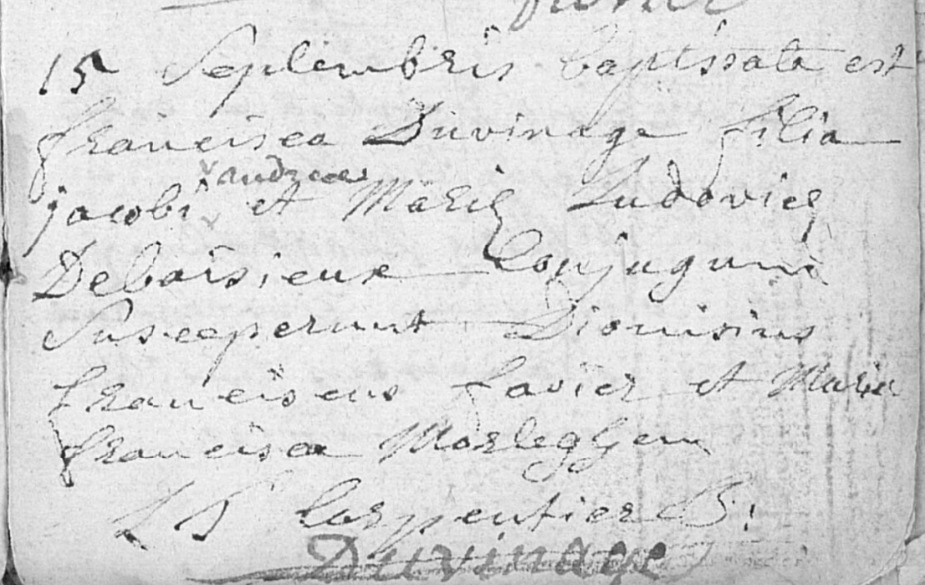 15 Septembris baptissata est
francisca Duvinage filia
vandreas
jacobi et Mariæ Ludovicæ
Deboisieux Conjugum
Susceperunt Dionisius
franciscus favier et Maria
francisca Morleghem
L S Carpentier B:
Duvinage